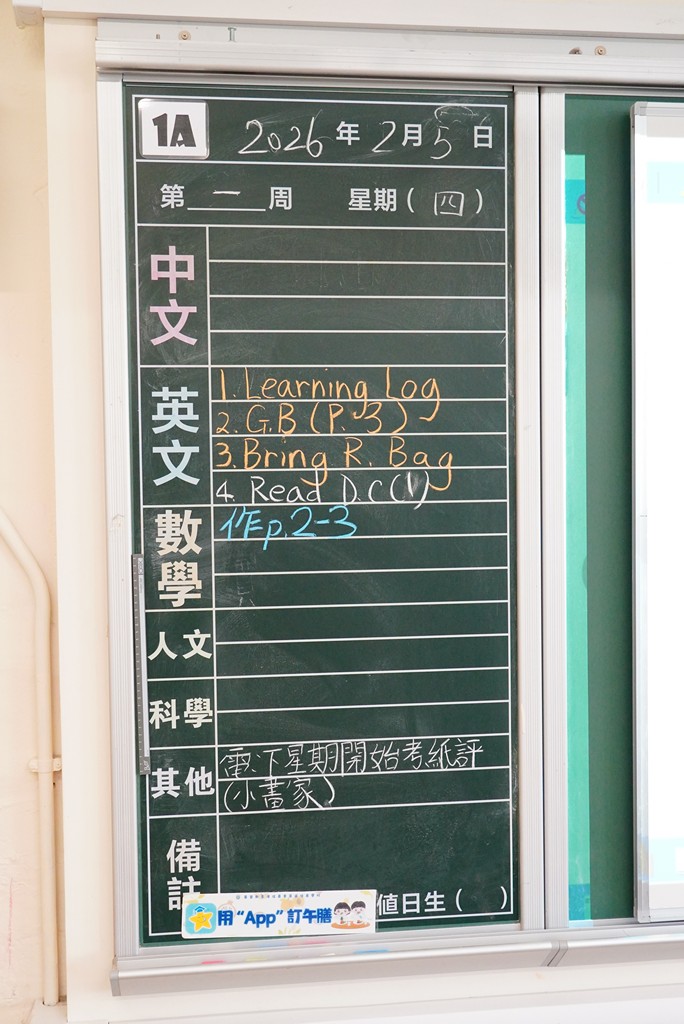 1A
2026年2月5日
第一周 星期(四)
中文
英文
1. Learning Log
2. G.B (P. 3)
3. Bring R. Bag
4. Read D.C (1)
數學
作p.2-3
人文
科學
其他
電:下星期開始考紙評
(小畫家)
備註
用“App”訂午膳
值日生( )